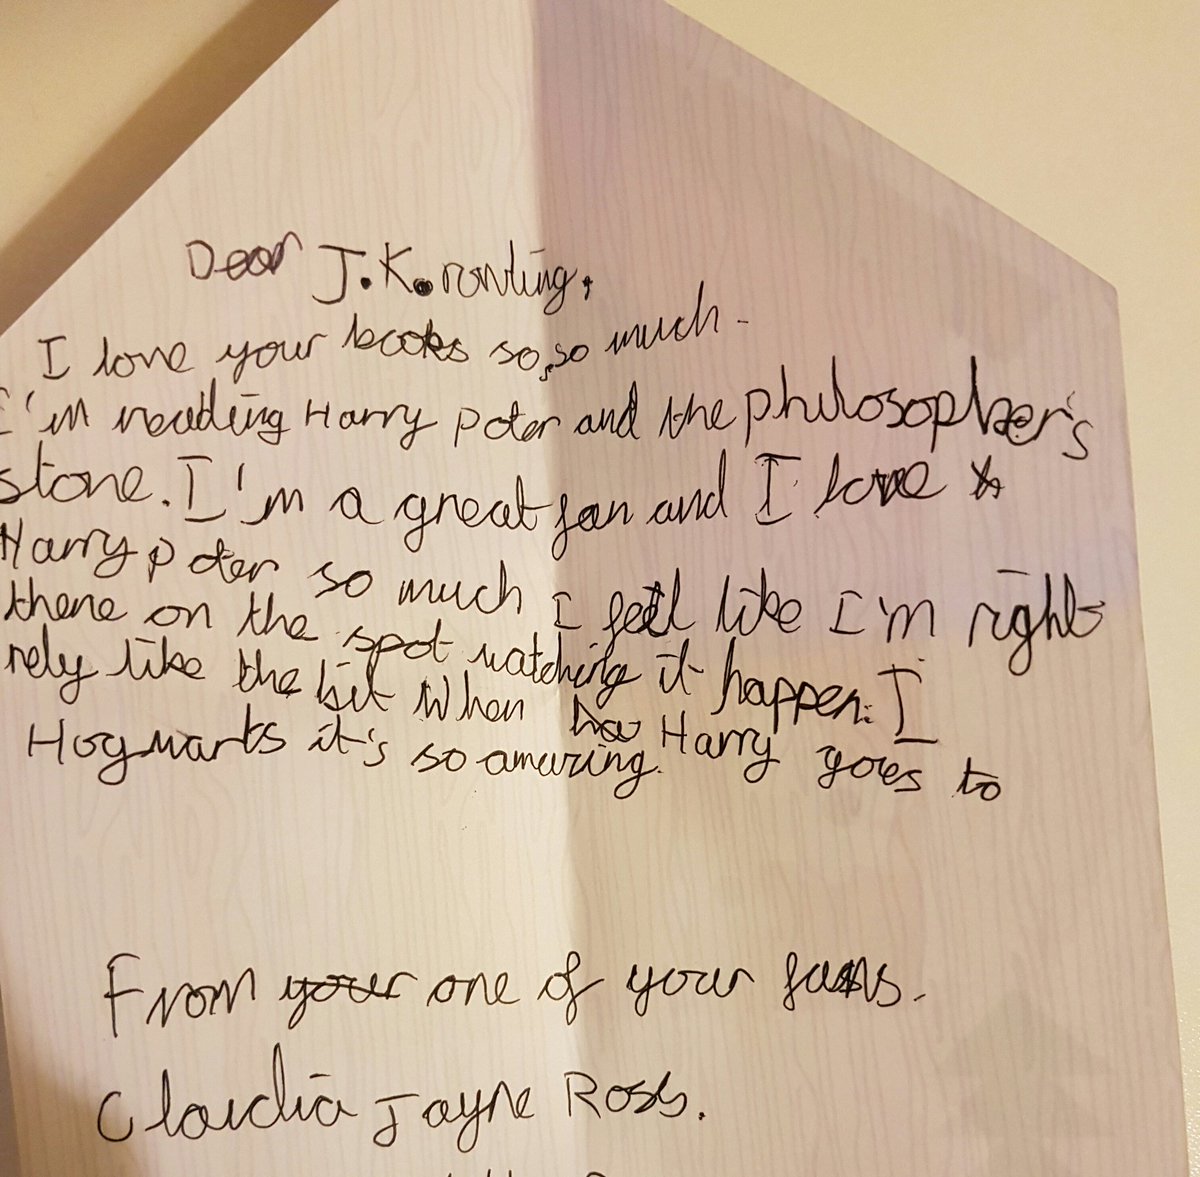 Dear J.K.rowling,
I love your books so,so much.
I'm reading Harry Poter and the philosopher's
stone. I'm a great fan and I love
Harry poter so much I feel like I'm right
there on the spot watching it happen. I
rely like the bit when Harry goes to
Hogwarts it's so amazing.
From your one of your fans.
Claudia Jayne Ross.